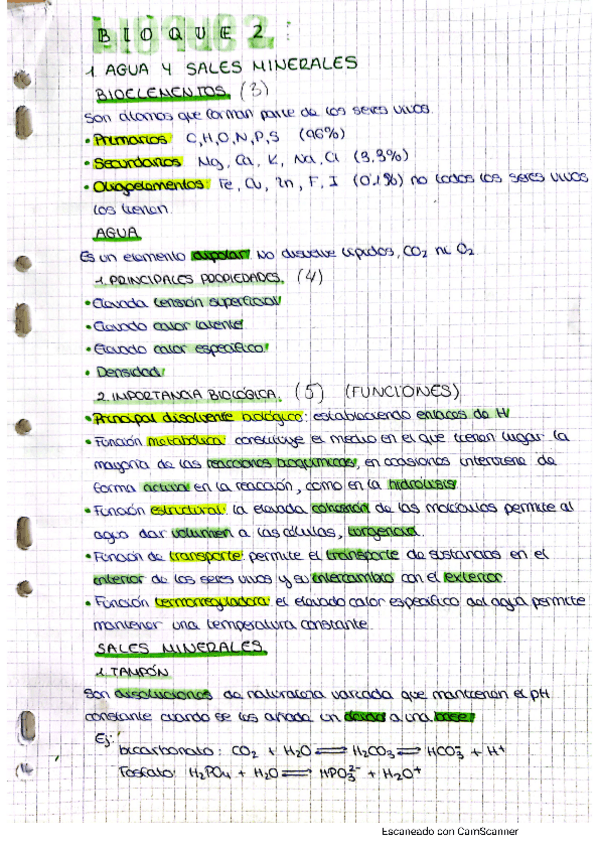 BLOQUE 2:
1. AGUA Y SALES MINERALES
BIOELEMENTOS. (3)
Son átomos que forman parte de los seres vivos.
• Primarios: C,H,O,N,P,S (96%)
• Secundarios: Mg, Ca, K, Na, Cl (3.3%)
• Oligoelementos: Fe, Cu, Zn, F, I (0.1%) no todos los seres vivos
los tienen.
AGUA
Es un elemento dipolar. No disuelve lípidos, CO2 ni O2.
1. PRINCIPALES PROPIEDADES. (4)
• Elevada tensión superficial
• Elevado calor latente
• Elevado calor específico.
• Densidad.
2. IMPORTANCIA BIOLÓGICA. (5) (FUNCIONES)
• Principal disolvente biológico: estableciendo enlaces de H
• Función metabólica: constituye el medio en el que tienen lugar la
mayoría de las reacciones bioquímicas, en ocasiones interviene de
forma activa en la reacción, como en la hidrólisis
• Función estructural: la elevada cohesión de las moléculas permite al
agua dar volumen a las células, turgencia.
• Función de transporte: permite el transporte de sustancias en el
interior de los seres vivos y su intercambio con el exterior.
• Función termorreguladora: el elevado calor específico del agua permite
mantener una temperatura constante.
SALES MINERALES.
1. TAMPÓN
Son disoluciones de naturaleza variada que mantienen el pH
constante cuando se les añade un ácido a una base.
Ej:
bicarbonato: CO2 + H2O ⇌ H2CO3 ⇌ HCO3⁻ + H⁺
Fosfato: H2PO4 + H2O ⇌ HPO3²⁻ + H2O⁺
Escaneado con CamScanner